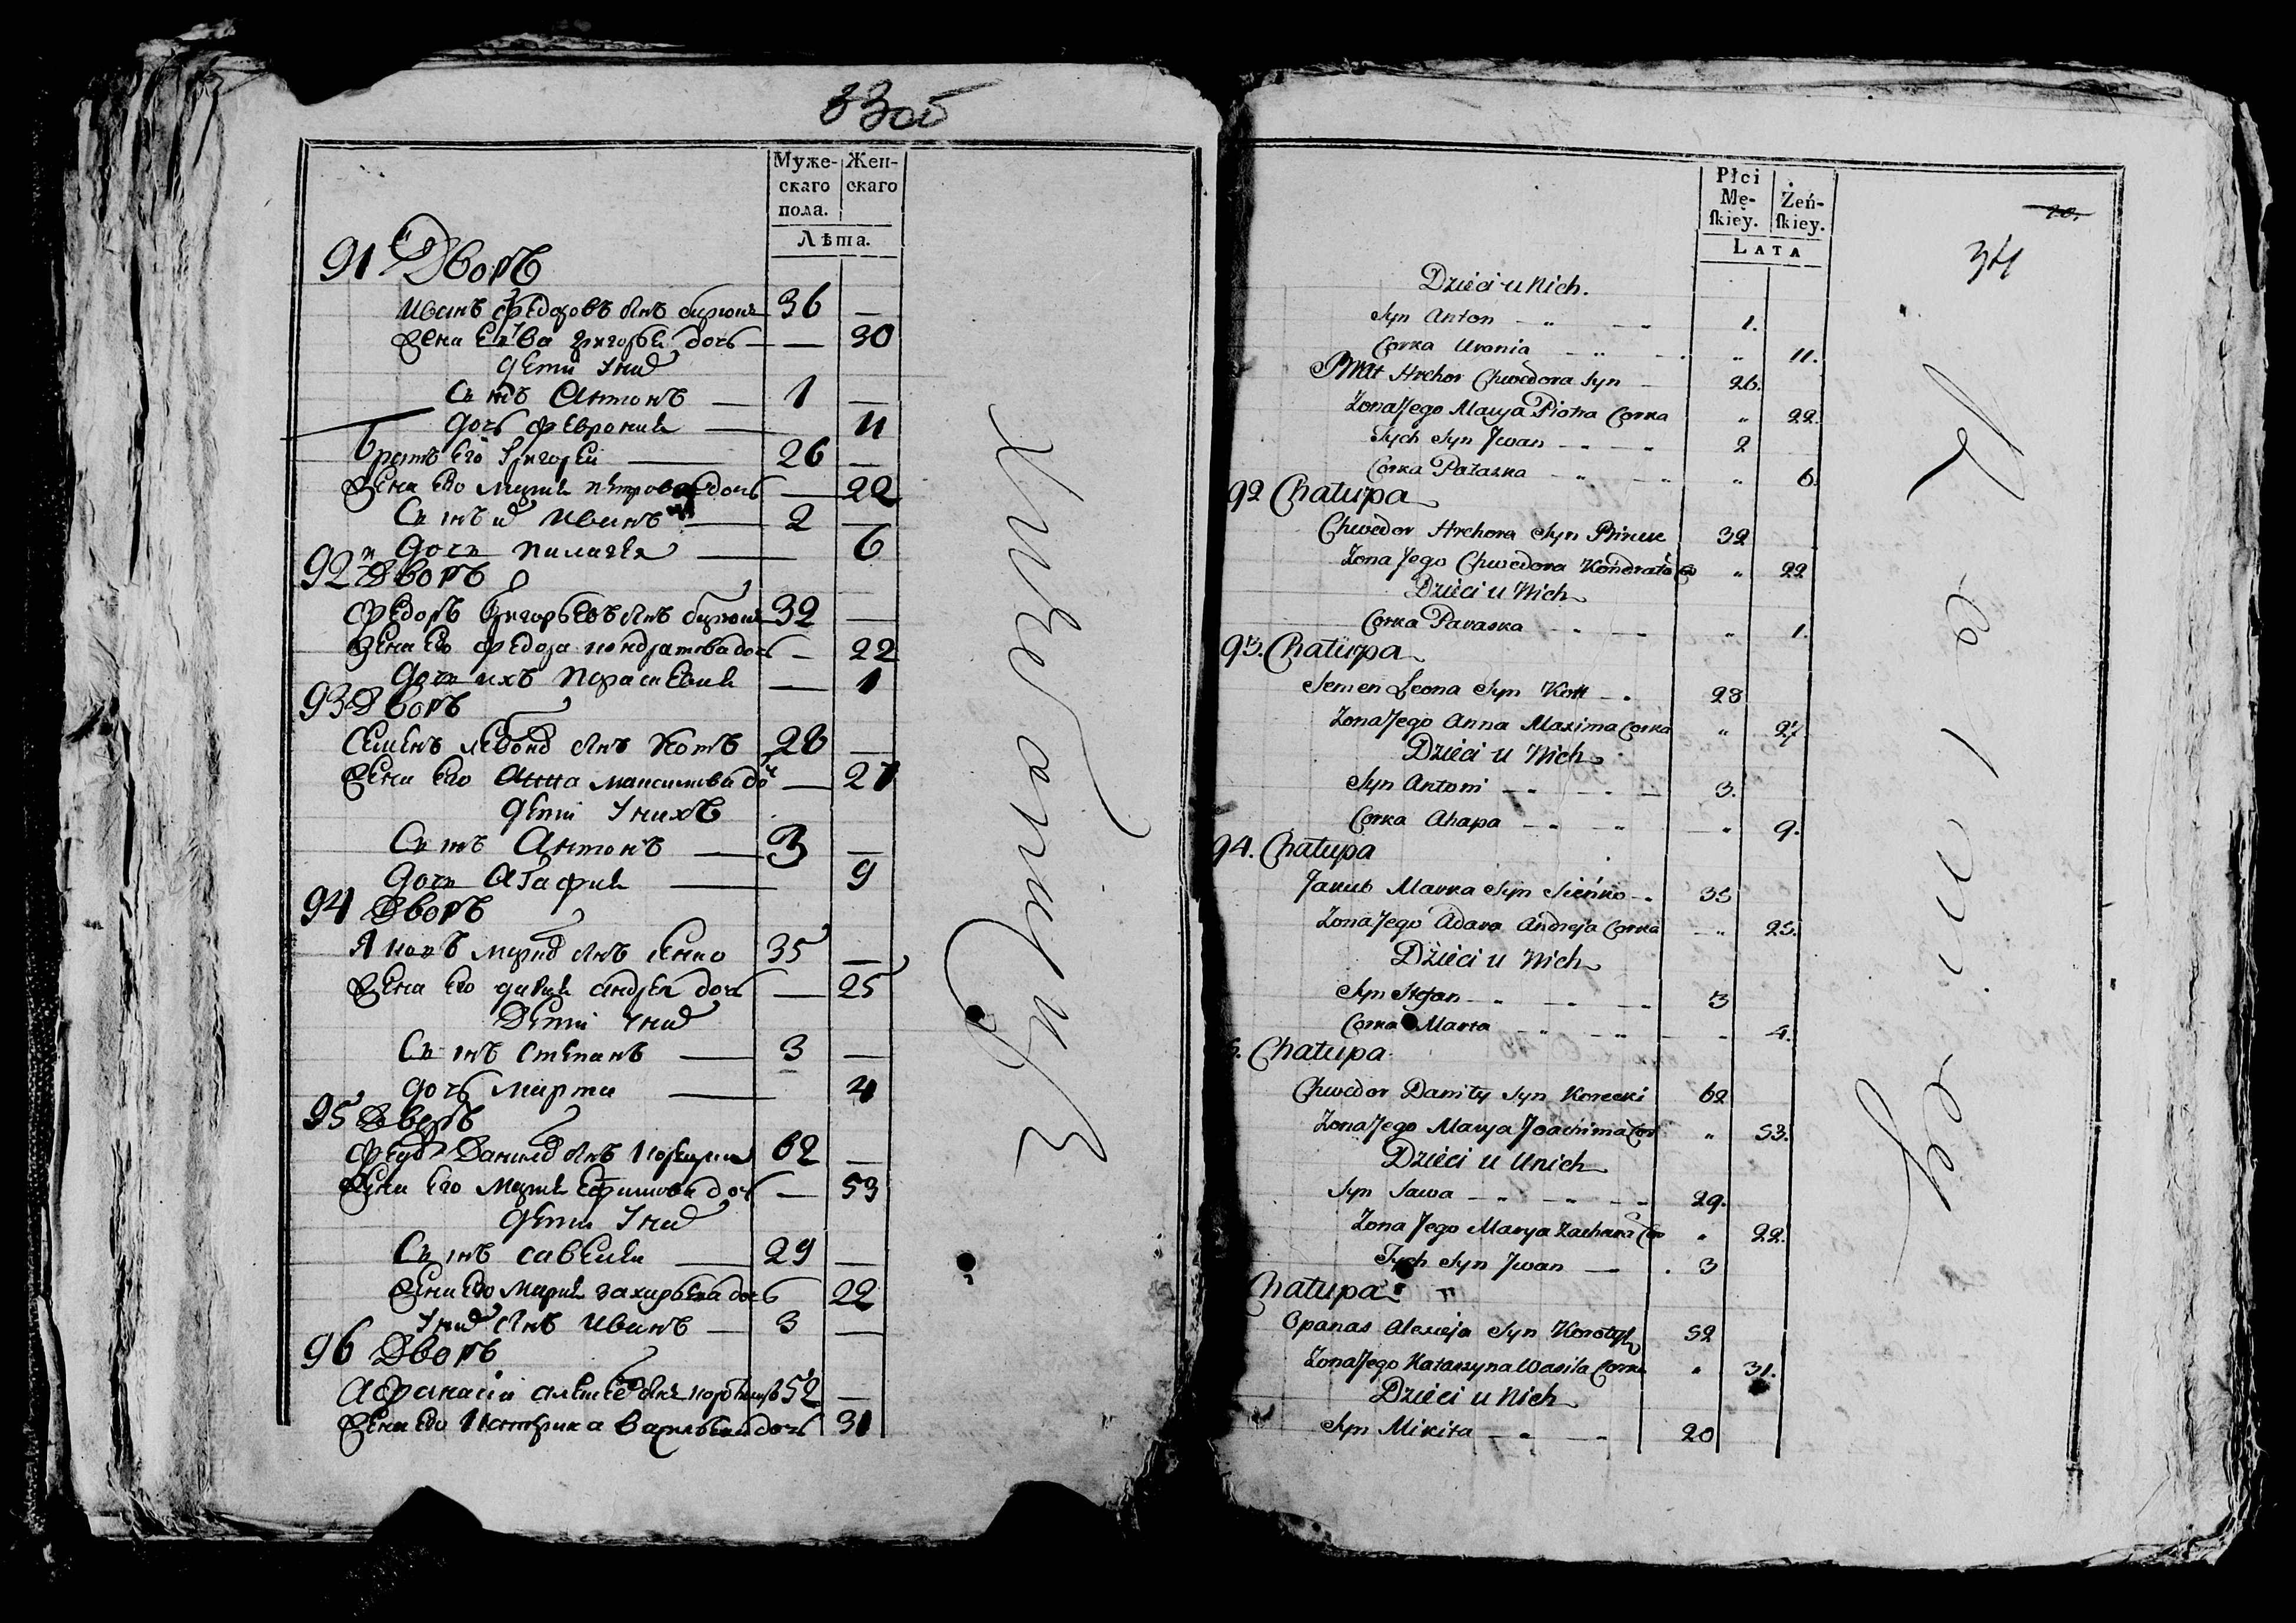 33об
Муже-
скаго
пола.
Жен-
скаго
Лѣта.
91 Дворъ
Иванъ Федоровъ снъ 36 —
Жена Его Ева Григорьева дочь — 30
дети у них
Сынъ Антонъ — 1 —
Дочь Феврония — 11
Братъ Его Григорей — 26 —
Жена Его Мария Петрова дочь — 22
Сынъ их Иванъ — 2 —
Дочь Палагея — 6
92 Дворъ
Федоръ Григорьевъ снъ 32 —
Жена Его Федора Кондратова дочь — 22
Дочь ихъ Парасковия — 1
93 Дворъ
Семенъ Левонов снъ Котъ 28 —
Жена Его Анна Максимова доч — 27
Дети у нихъ
Сынъ Антонъ — 3 —
Дочь Агафия — 9
94 Дворъ
Яковъ Марков снъ Сенко 35 —
Жена Его Дария Андрея дочь — 25
Дети у них
Сынъ Степанъ — 3 —
Дочь Марта — 4
95 Дворъ
Федор Данилов снъ 62 —
Жена Его Мария Ефимова дочь — 53
Дети у них
Сынъ Савелий — 29 —
Жена Его Мария Захарьева дочь 22
У них снъ Иванъ — 3 —
96 Дворъ
Афанасий Алексеев снъ 52 —
Жена Его Катерина Васильева дочь 31
Płci
Mę-
skiey.
Żeń-
skiey.
LATA
20.
34
Dzieci u Nich.
Syn Anton — „ — 1.
Corka Urania — „ — „ 11.
Brat Hrehor Chwedora Syn — 26.
Zona Jego Marya Piotra Corka „ 22.
Tych Syn Jwan — „ — 2
Corka Pałaska — „ — „ 6.
92 Chałupa
Chwedor Hrehora Syn 32
Zona Jego Chwedora Kondrata Co „ 22
Dzieci u Nich
Corka Paraska — „ — „ 1.
93. Chałupa
Semen Leona Syn Kott — „ 28
Zona Jego Anna Maxima Corka „ 27
Dzieci u Nich
Syn Antoni — „ — 3.
Corka Ahapa — „ — „ 9.
94. Chałupa
Jakub Marka Syn Sieńko — „ 35
Zona Jego Adara Andreja Corka — „ 25.
Dzieci u Nich
Syn Stefan — „ — 3
Corka Marta — „ — 4.
5. Chałupa
Chwedor Daniły Syn Korecki 62
Zona Jego Marya Joachima Cor „ 53.
Dzieci u Unich
Syn Sawa — „ — 29.
Zona Jego Marya Zachara Co „ 22.
Tych Syn Jwan — . 3
Chałupa
Opanas Alexieja Syn 52
Zona Jego Katarzyna Wasila Corka „ 31.
Dzieci u Nich
Syn Mikita — „ — 20